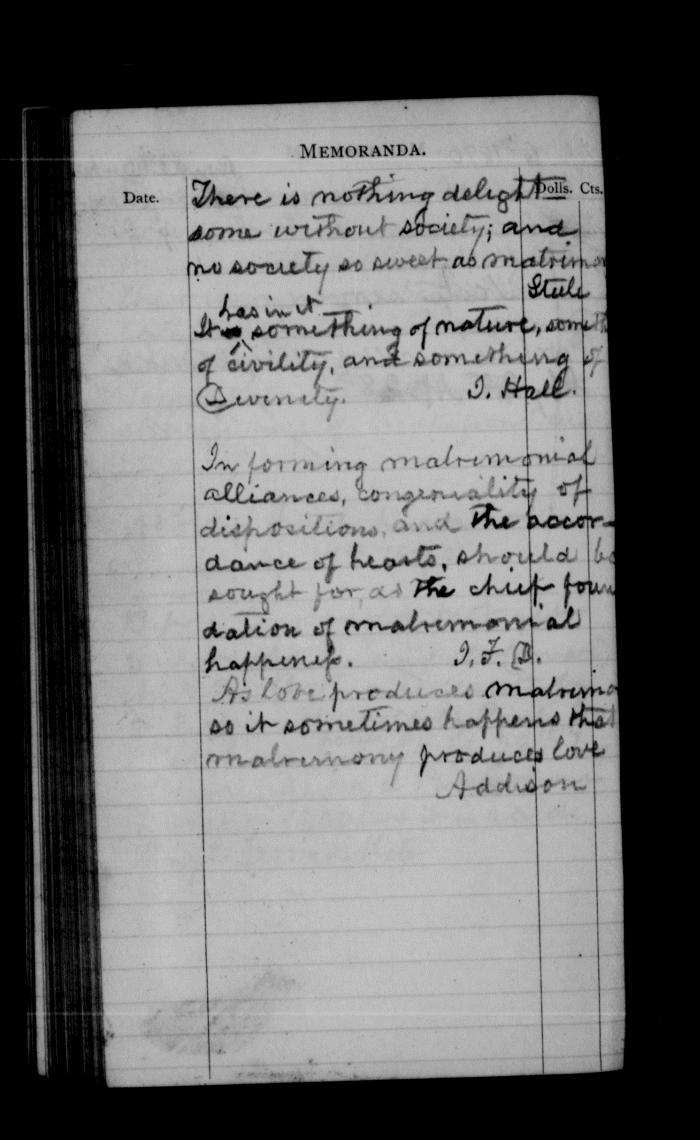 MEMORANDA.
Date. Dolls. Cts.
There is nothing delight
some without society; and
no society so sweet as matrimon
Steele
has in it
It something of nature, someth
of civility, and something of
Divinity. I. Hall.
In forming matrimonial
alliances, congeniality of
dispositions, and the accor-
dance of hearts, should be
sought for, as the chief foun
dation of matrimonial
happiness. I. F. B.
As love produces matrimo
so it sometimes happens that
matrimony produces love
Addison